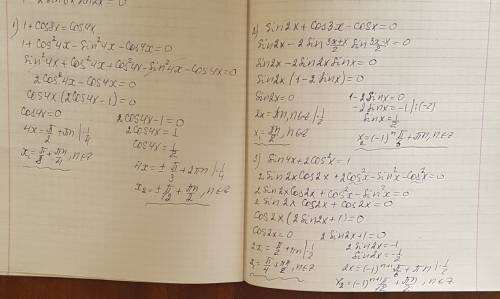 1) 1+cos8x=cos4x
1+cos²4x-sin²4x-cos4x=0
sin²4x+cos²4x+cos²4x-sin²4x-cos4x=0
2cos²4x-cos4x=0
cos4x(2cos4x-1)=0
cos4x=0
4x=π/2+πn|·1/4
x₁=π/8+πn/4, n∈Z
2cos4x-1=0
2cos4x=1
cos4x=1/2
4x=±π/3+2πn|·1/4
x₂=±π/12+πn/2, n∈Z
2) sin2x+cos3x-cosx=0
sin2x-2sin (3x+x)/2 sin (3x-x)/2=0
sin2x-2sin2x sinx=0
sin2x(1-2sinx)=0
sin2x=0
2x=πn, n∈Z|·1/2
x₁=πn/2, n∈Z
1-2sinx=0
-2sinx=-1|:(-2)
sinx=1/2
x₂=(-1)ⁿ π/6+πn, n∈Z
3) sin4x+2cos²x=1
2sin2xcos2x+2cos²x-sin²x-cos²x=0
2sin2xcos2x+cos²x-sin²x=0
2sin2x cos2x+cos2x=0
cos2x(2sin2x+1)=0
cos2x=0
2x=π/2+πn|·1/2
x₁=π/4+πn/2, n∈Z
2sin2x+1=0
2sin2x=-1
sin2x=-1/2
2x=(-1)ⁿ⁺¹ π/6+πn|·1/2
x₂=(-1)ⁿ⁺¹ π/12+πn/2, n∈Z